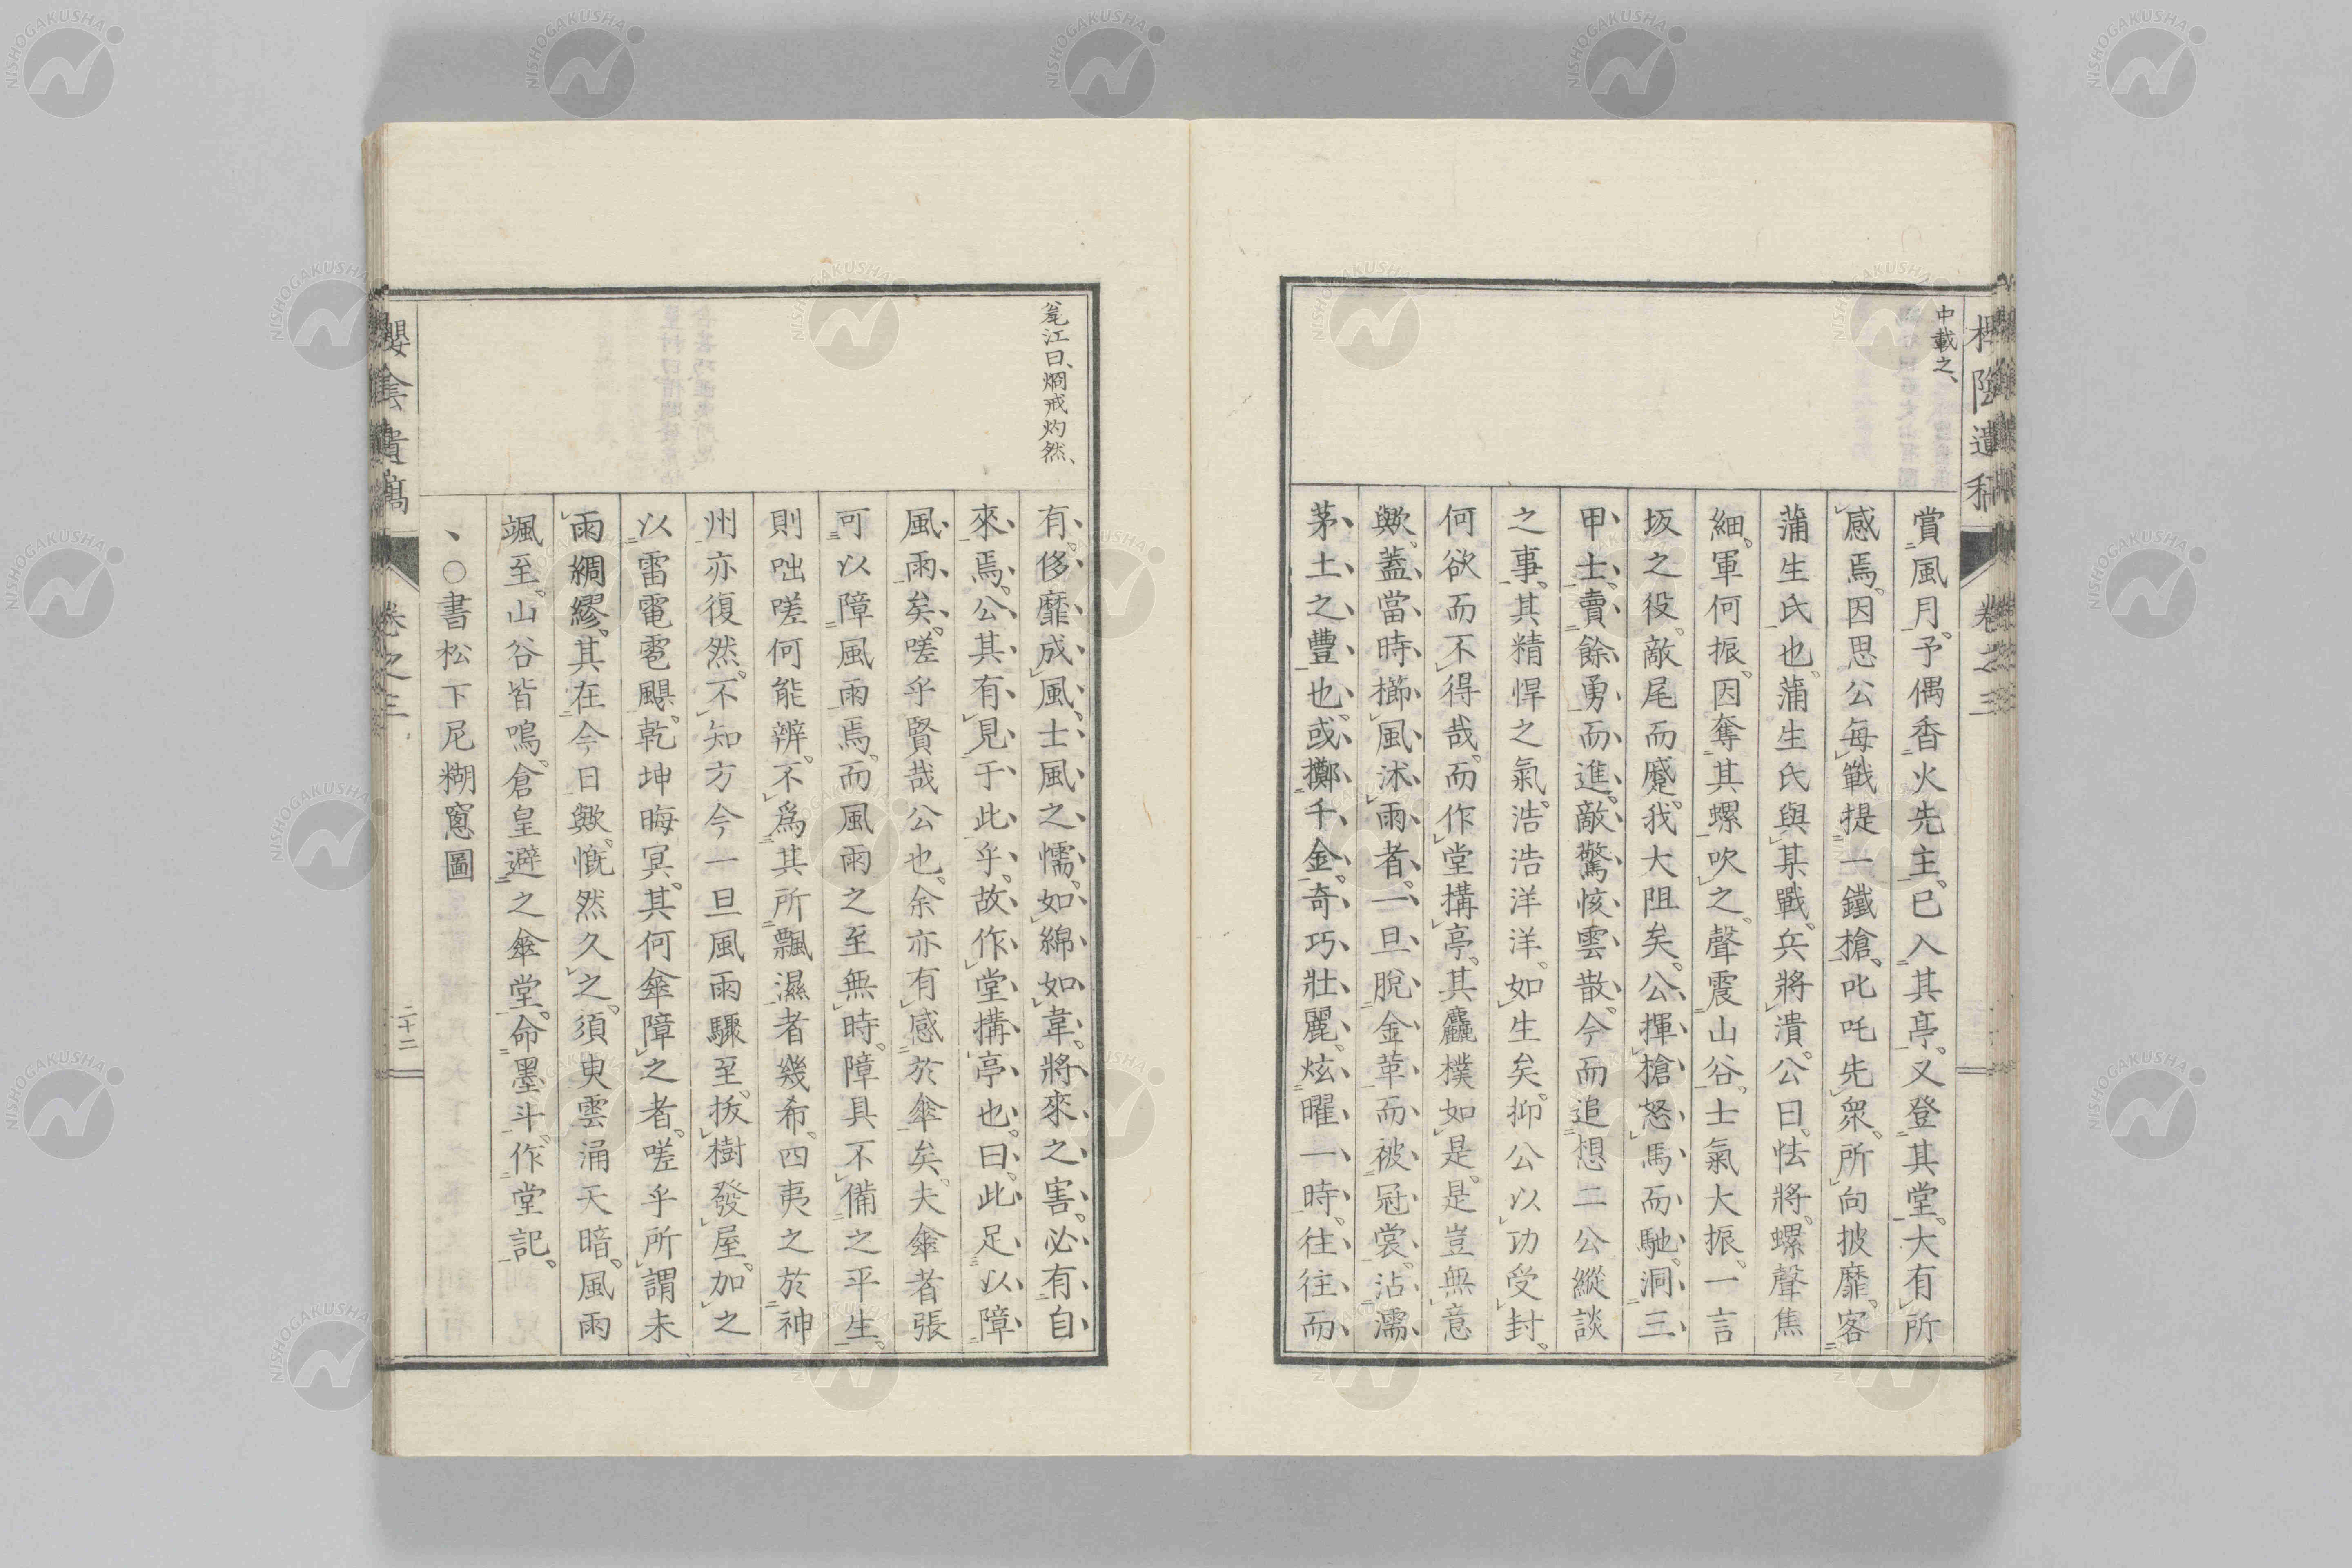 中載之、
賞風月。予偶香火先主。已入其亭。又登其堂。大有所
感焉。因思公每戰提一鐵槍。叱吒先衆。所向披靡。客
蒲生氏也。蒲生氏與某戰。兵將潰。公曰怯將。螺聲焦
細。軍何振。因奪其螺吹之。聲震山谷。士氣大振。一言
坂之役。敵尾而蹙。我大阻矣。公揮槍怒馬而馳。洞三
甲士。賣餘勇而進。敵驚恔雲散。今而追想二公縱談
之事。其精悍之氣。浩浩洋洋。如生矣。抑公以功受封。
何欲而不得哉。而作堂搆亭。其麤樸如是。是豈無意
歟。蓋當時櫛風沐雨者。一旦脫金革而被冠裳。沾濡
茅土之豐也。或擲千金。奇巧壯麗。炫曜一時。往往而
有。侈靡成風。士風之懦。如綿如韋。將來之害。必有自
來焉。公其有見于此乎。故作堂搆亭也。曰。此足以障
風雨矣。嗟乎賢哉公也。余亦有感於傘矣。夫傘者張
可以障風雨焉。而風雨之至無時。障具不備之平生。
則咄嗟何能辨。不爲其所飄濕者幾希。四夷之於神
州亦復然。不知方今一旦風雨驟至。拔樹發屋。加之
以雷電雹颶。乾坤晦冥。其何傘障之者。嗟乎所謂未
雨綢繆。其在今日歟。慨然久之。須臾雲涌天暗。風雨
颯至。山谷皆鳴。倉皇避之傘堂。命墨斗。作堂記。
、○書松下尼糊窻圖
甕江曰、烱戒灼然、
櫻陰遺稿
卷之三
二十二